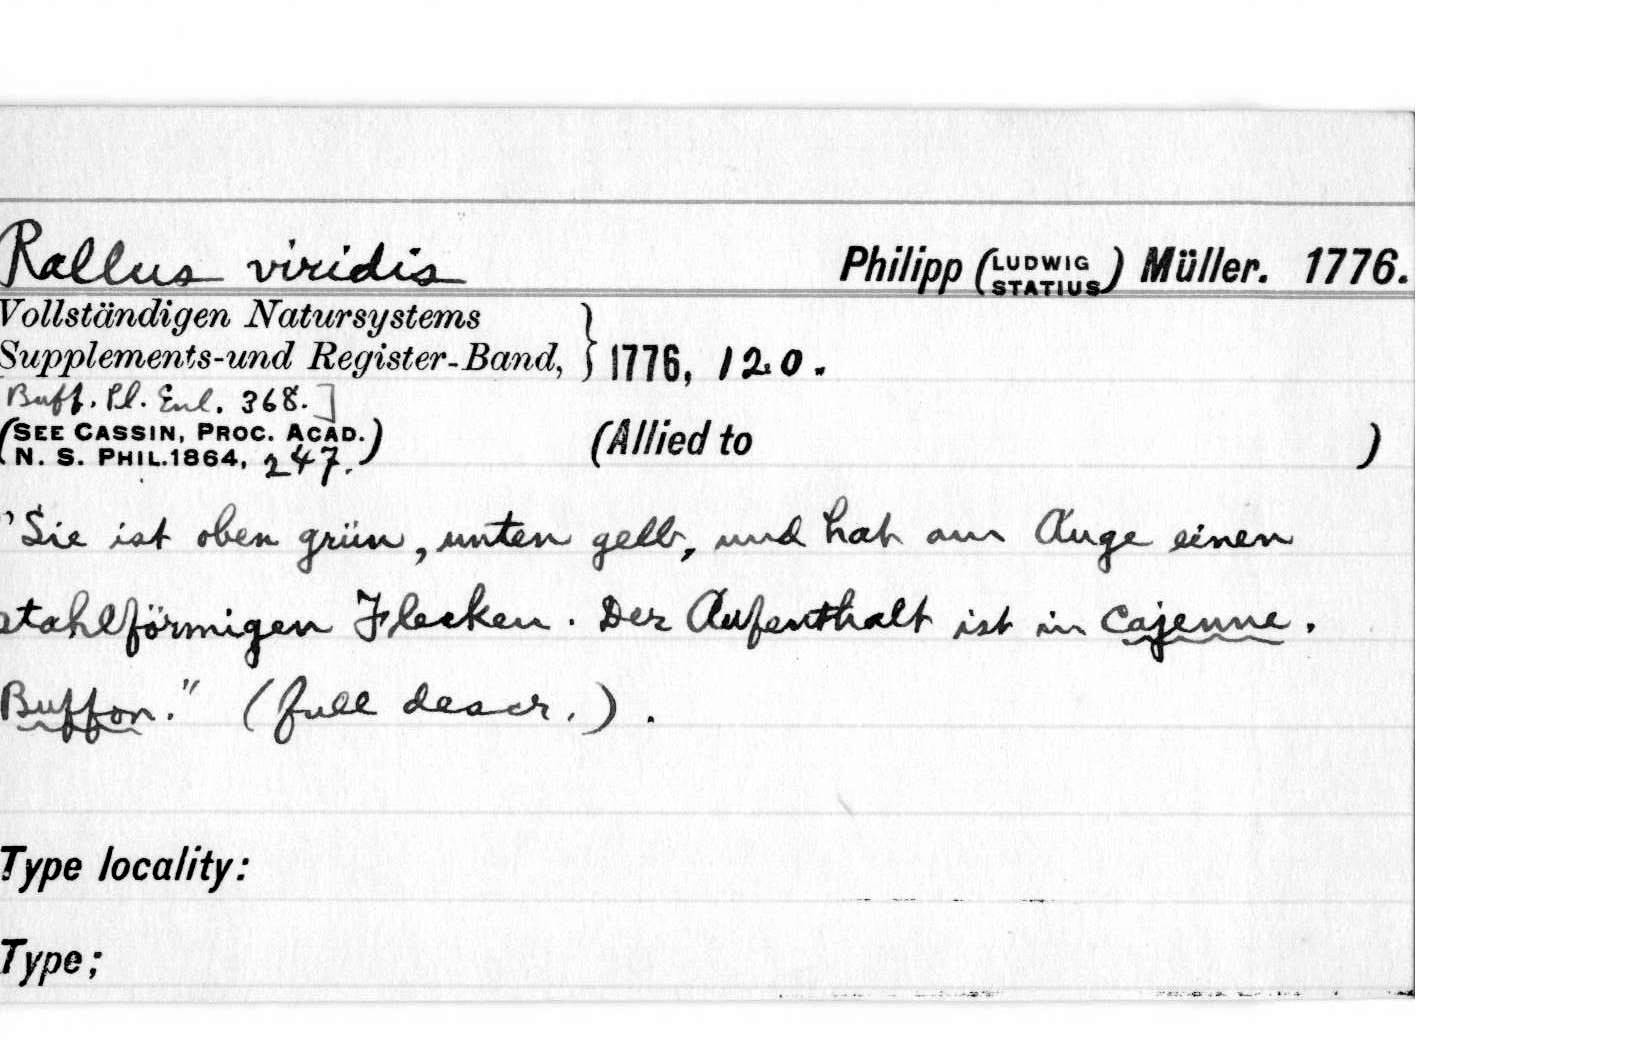 Rallus viridis Philipp (LUDWIG STATIUS) Müller. 1776.
Vollständigen Natursystems
Supplements-und Register-Band, } 1776, 120.
[Buff. Pl. Enl. 368.]
(SEE CASSIN, PROC. ACAD.
N. S. PHIL. 1864, 247.) (Allied to )
"Sie ist oben grün, unten gelb, und hat am Auge einen
stahlförmigen Flecken. Der Aufenthalt ist in Cajenne.
Buffon." (full descr.).
Type locality:
Type;